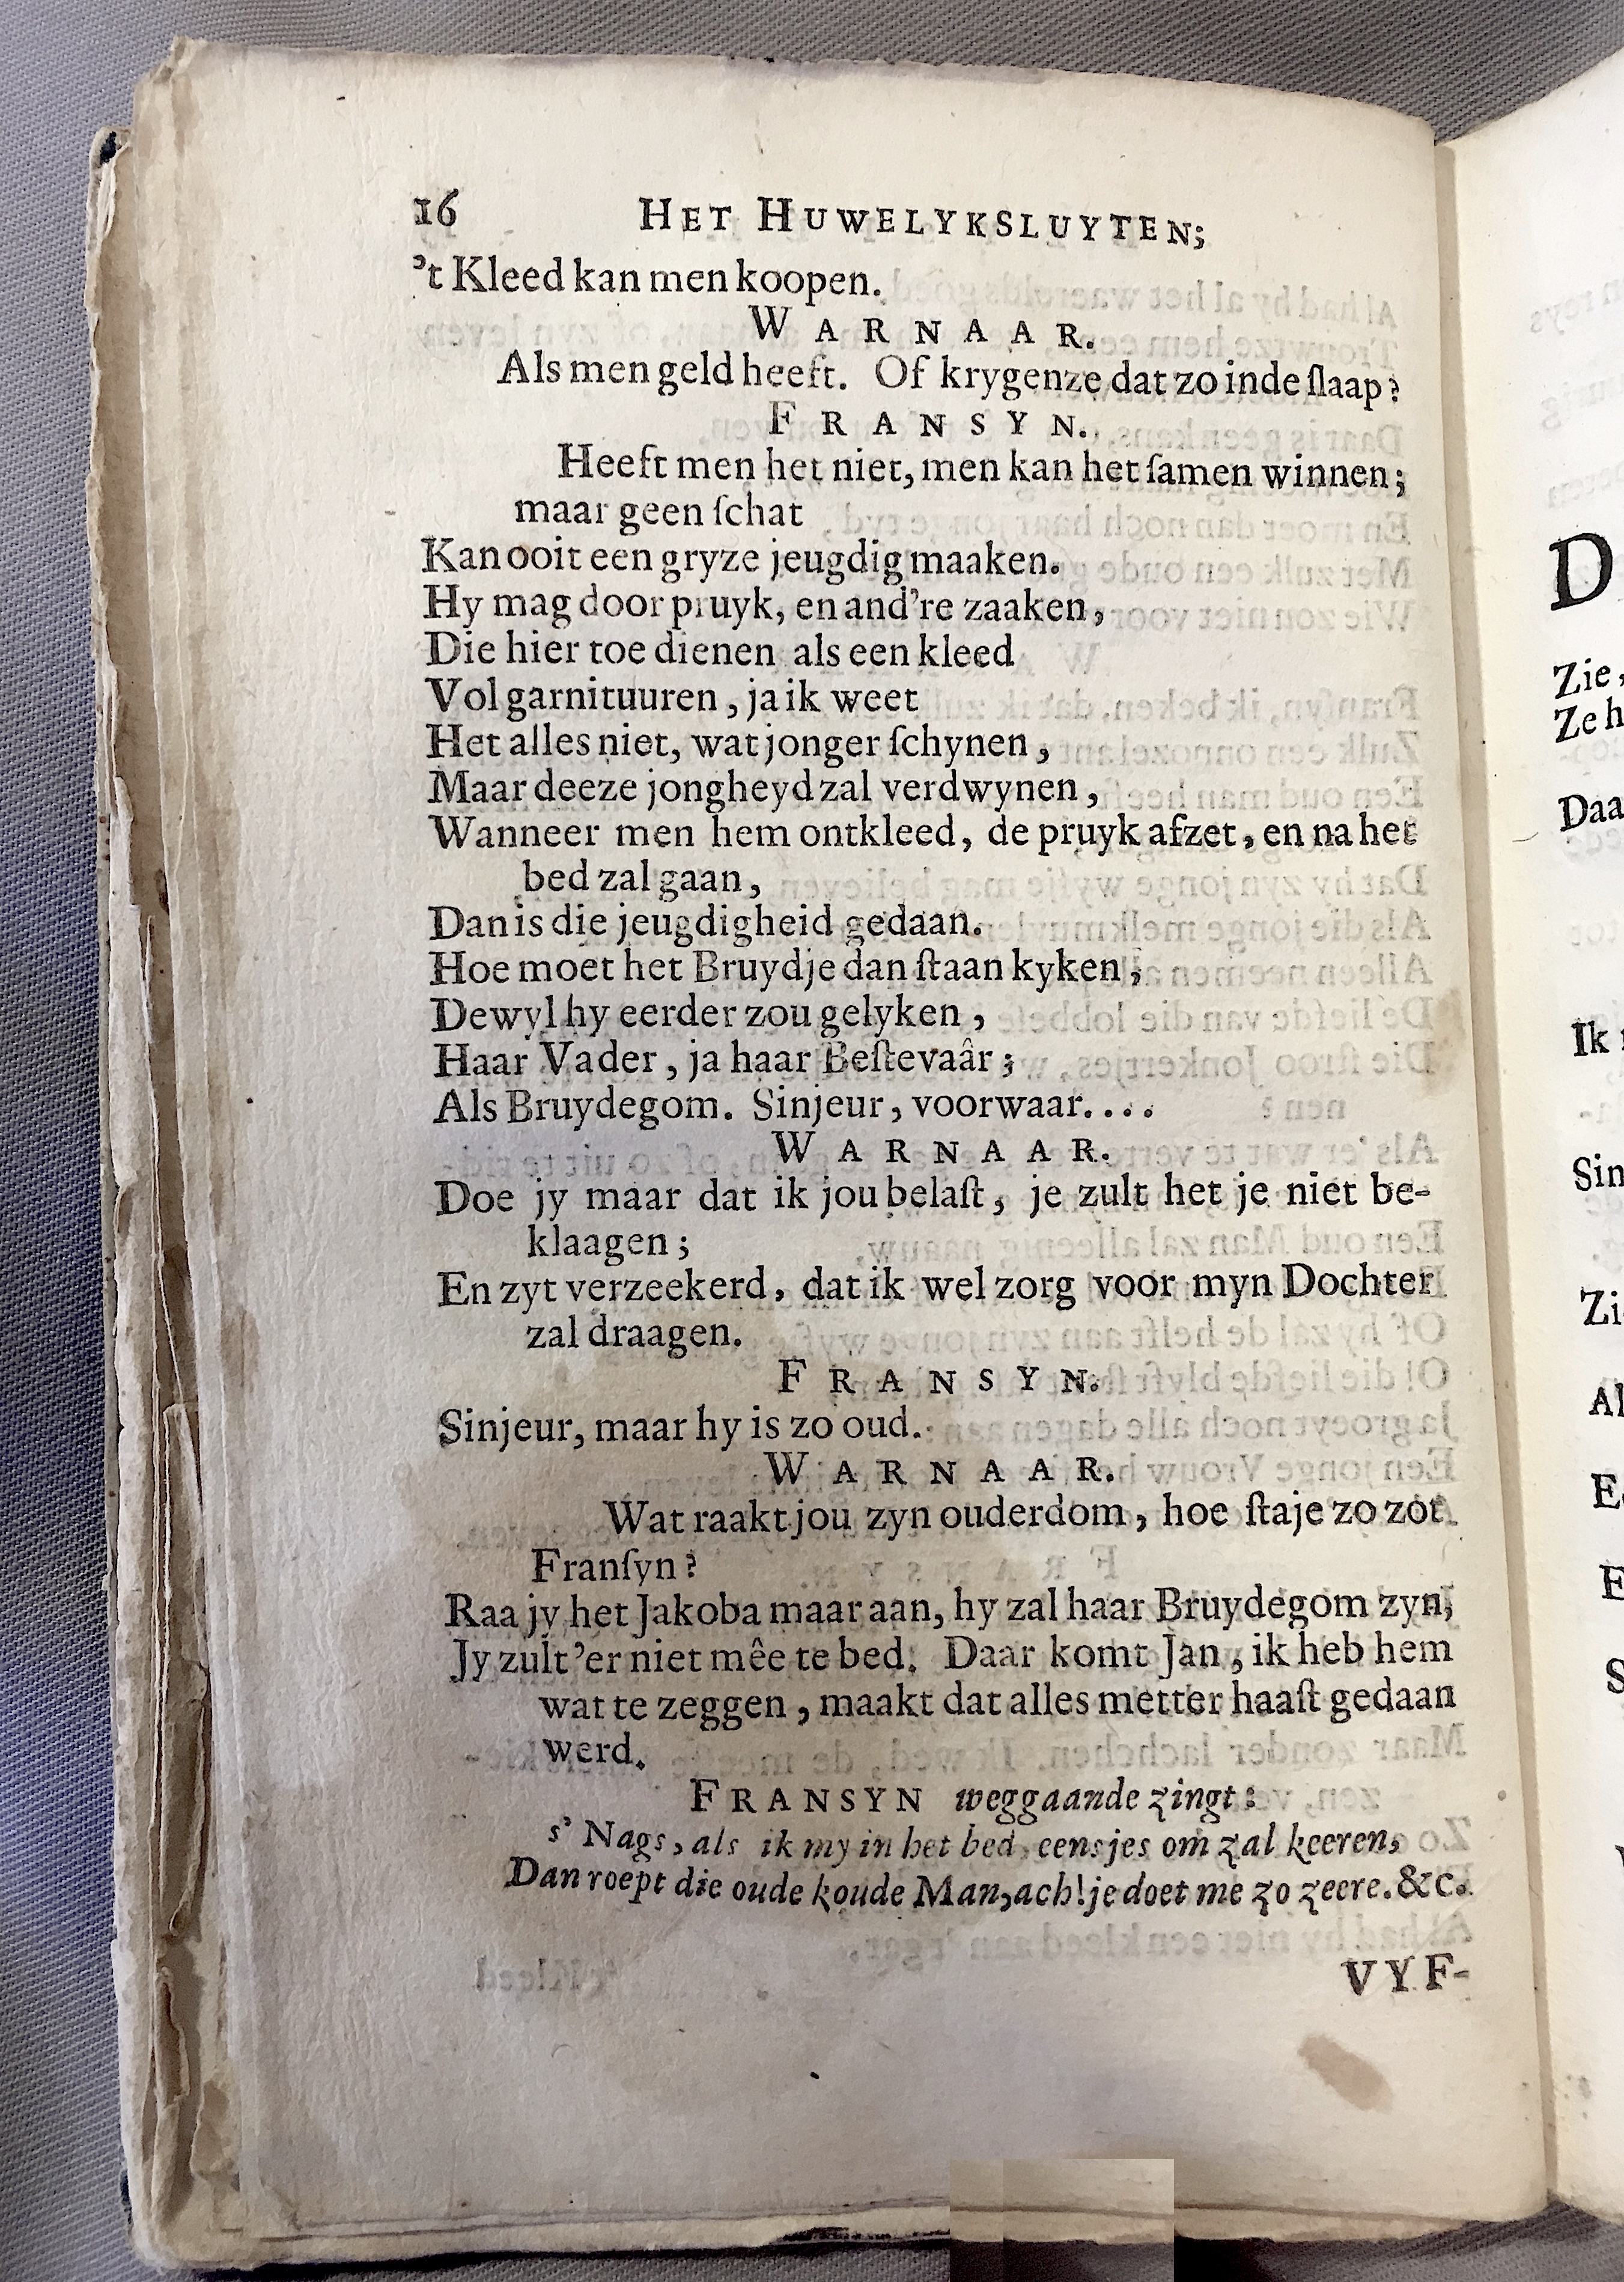 16 HET HUWELYKSLUYTEN;
’t Kleed kan men koopen.
WARNAAR.
Als men geld heeft. Of krygenze dat zo inde ſlaap?
FRANSYN.
Heeft men het niet, men kan het ſamen winnen;
maar geen ſchat
Kan ooit een gryze jeugdig maaken.
Hy mag door pruyk, en and’re zaaken,
Die hier toe dienen als een kleed
Vol garnituuren, ja ik weet
Het alles niet, wat jonger ſchynen,
Maar deeze jongheyd zal verdwynen,
Wanneer men hem ontkleed, de pruyk afzet, en na het
bed zal gaan,
Dan is die jeugdigheid gedaan.
Hoe moet het Bruydje dan ſtaan kyken,
Dewyl hy eerder zou gelyken,
Haar Vader, ja haar Beſtevaâr;
Als Bruydegom. Sinjeur, voorwaar....
WARNAAR.
Doe jy maar dat ik jou belaſt, je zult het je niet be-
klaagen;
En zyt verzeekerd, dat ik wel zorg voor myn Dochter
zal draagen.
FRANSYN.
Sinjeur, maar hy is zo oud.
WARNAAR.
Wat raakt jou zyn ouderdom, hoe ſtaje zo zot
Franſyn?
Raa jy het Jakoba maar aan, hy zal haar Bruydegom zyn,
Jy zult ’er niet mêe te bed. Daar komt Jan, ik heb hem
wat te zeggen, maakt dat alles metter haaſt gedaan
werd.
FRANSYN weggaande zingt:
s’ Nags, als ik my in het bed eensjes om zal keeren,
Dan roept die oude koude Man, ach! je doet me zo zeere. &c.
VYF-
D
Zie,
Ze h
Daa
Ik
Sin
Zi
Al
E
S